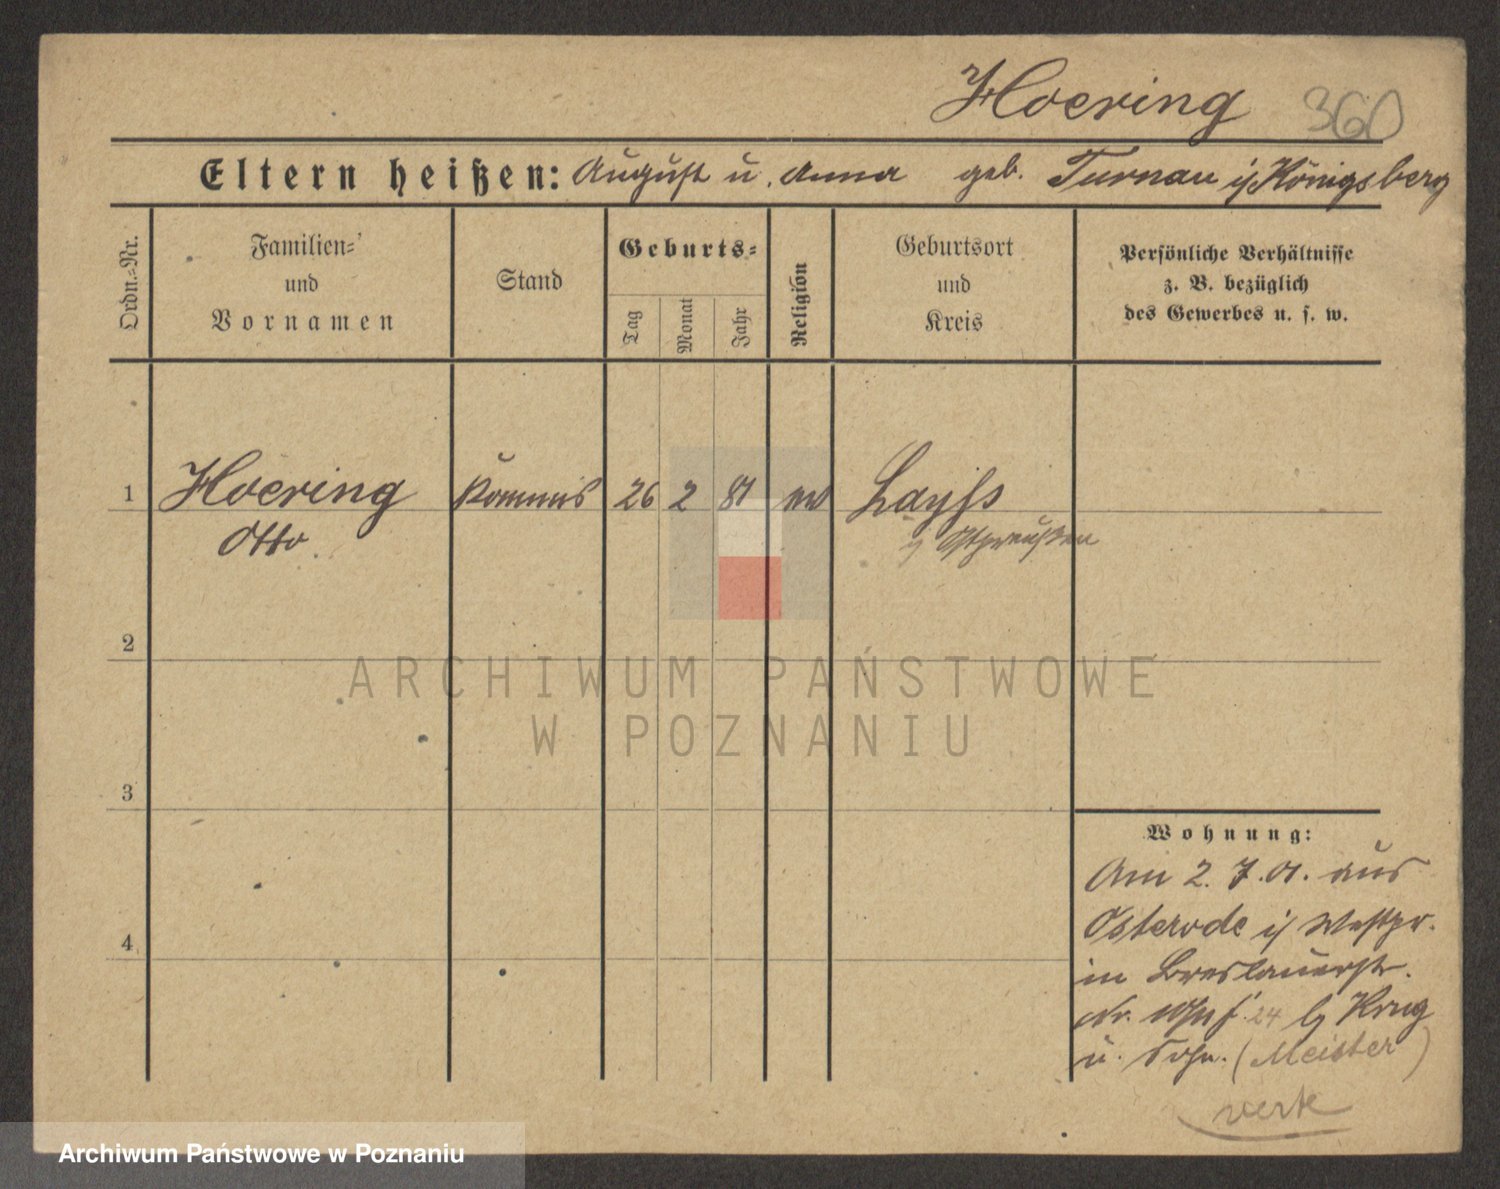 Hoering 360
Eltern heißen: August u. Anna geb. Turnau i/Königsberg
Ordn.-Nr.
Familien-
und
Vornamen
Stand
Geburts-
Tag
Monat
Jahr
Religion
Geburtsort
und
Kreis
Persönliche Verhältnisse
z. B. bezüglich
des Gewerbes u. s. w.
1 Hoering Kommis 26 2 81 Layss
Otto. Ostpreußen
2
3
4
Wohnung:
Am 2. 7. 01. aus
Osterode i/ Westpr.
in Breslauerstr.
Nr. 24 Krug
u. Sohn. (Meister)
ARCHIWUM PAŃSTWOWE
W POZNANIU
Archiwum Państwowe w Poznaniu